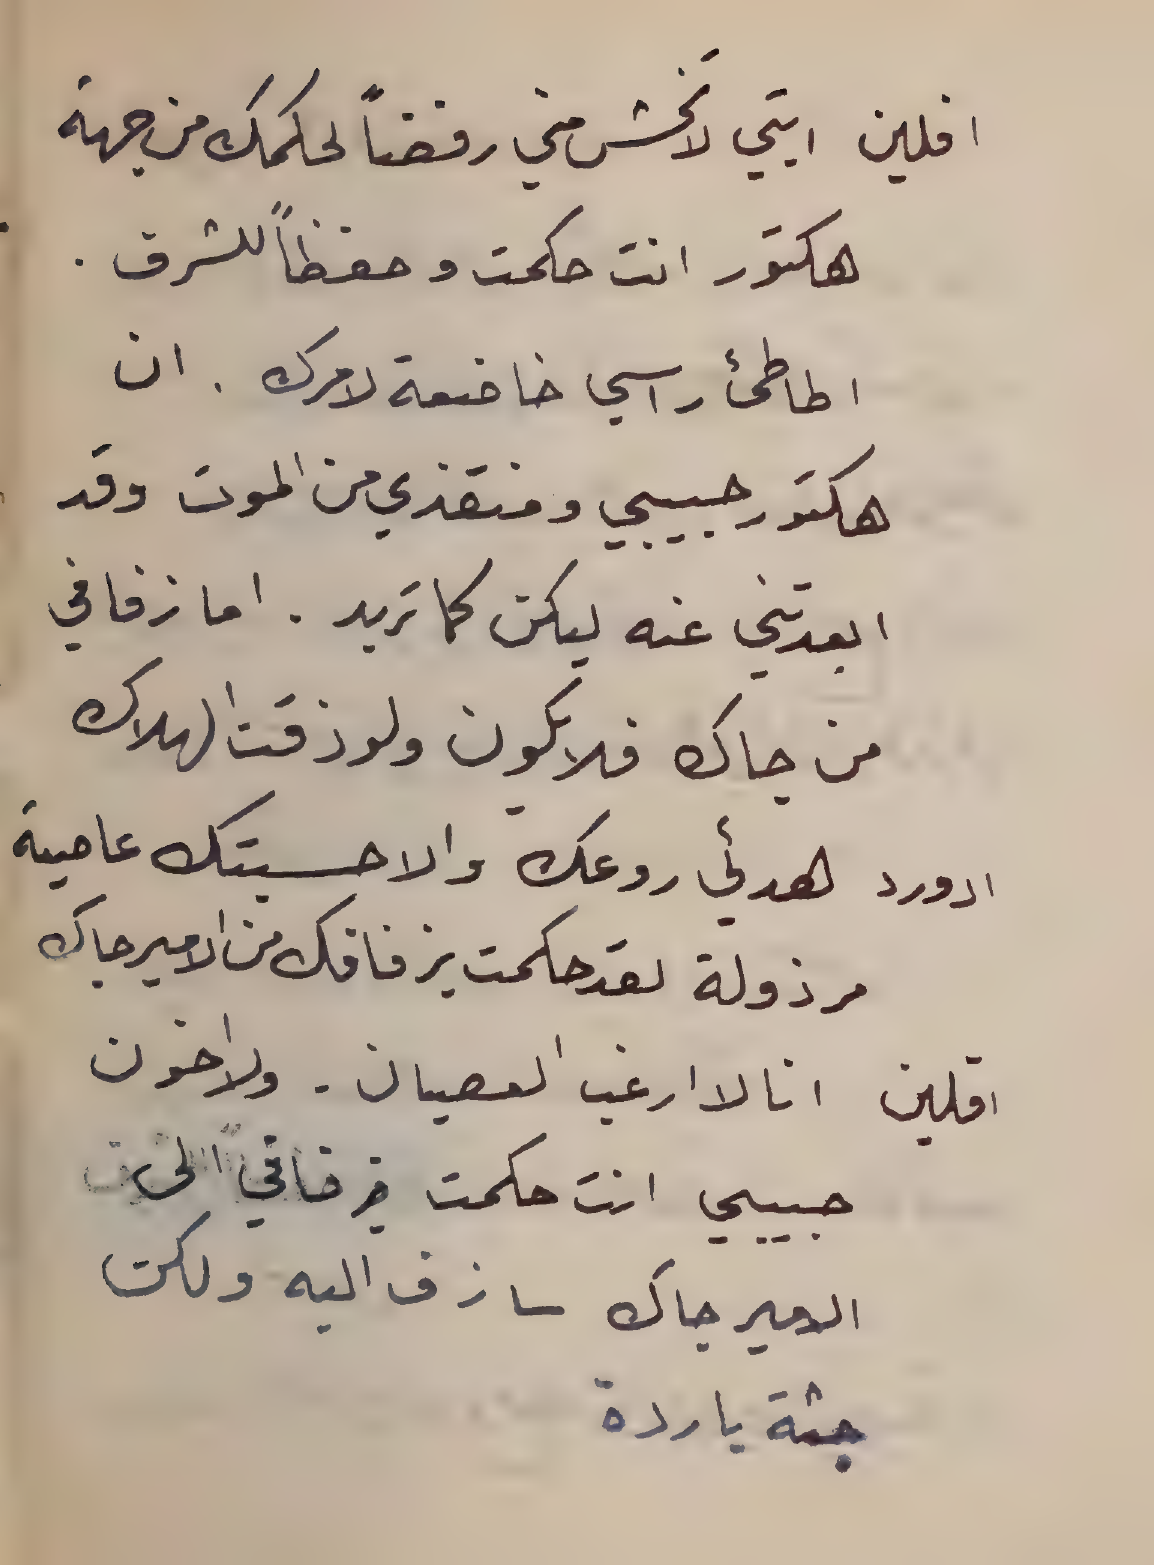 افلين ابتي لا تخش مني رفضاً لحكمك من جهة
هكتور انت حكمت و حفظاً للشرف .
اطاطئ راسي خاضعة لامرك . ان
هكتور حبيبي و منقذي من الموت وقد
ابعدتني عنه ليكن كما تريد . اما زفافي
من جاك فلا يكون ولو ذقت الهلاك
ادورد هدئي روعك والا حسبتك عاصية
مرذولة لقد حكمت بزفافك من الامير جاك
افلين انا لا ارغب العصيان . ولا اخون
حبيبي انت حكمت في زفافي الى
الامير جاك سازف اليه ولكن
جثة باردة